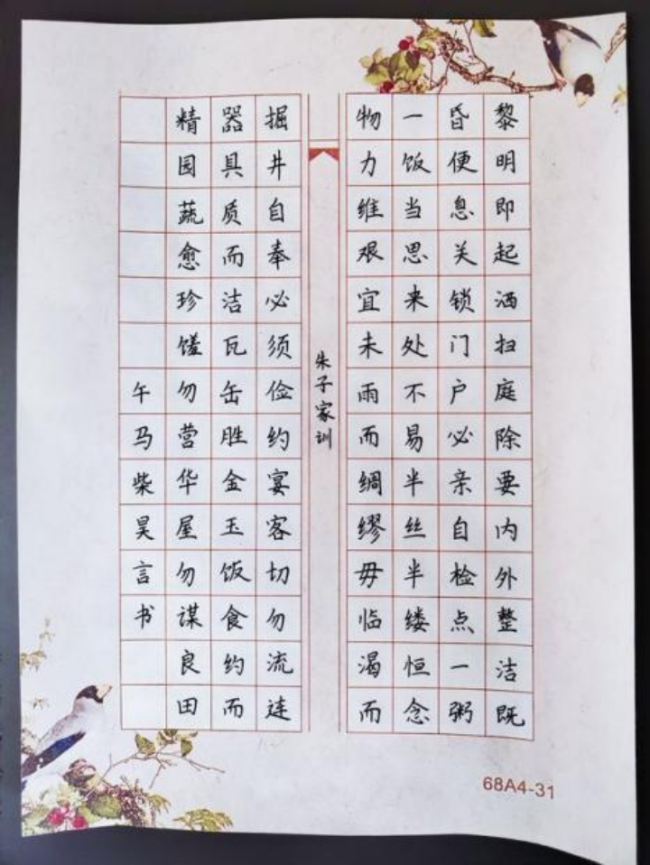 黎明即起洒扫庭除要内外整洁既
昏便息关锁门户必亲自检点一粥
一饭当思来处不易半丝半缕恒念
物力维艰宜未雨而绸缪毋临渴而
朱子家训
掘井自奉必须俭约宴客切勿流连
器具质而洁瓦缶胜金玉饭食约而
精园蔬愈珍馐勿营华屋勿谋良田
午马柴昊言书
68A4-31